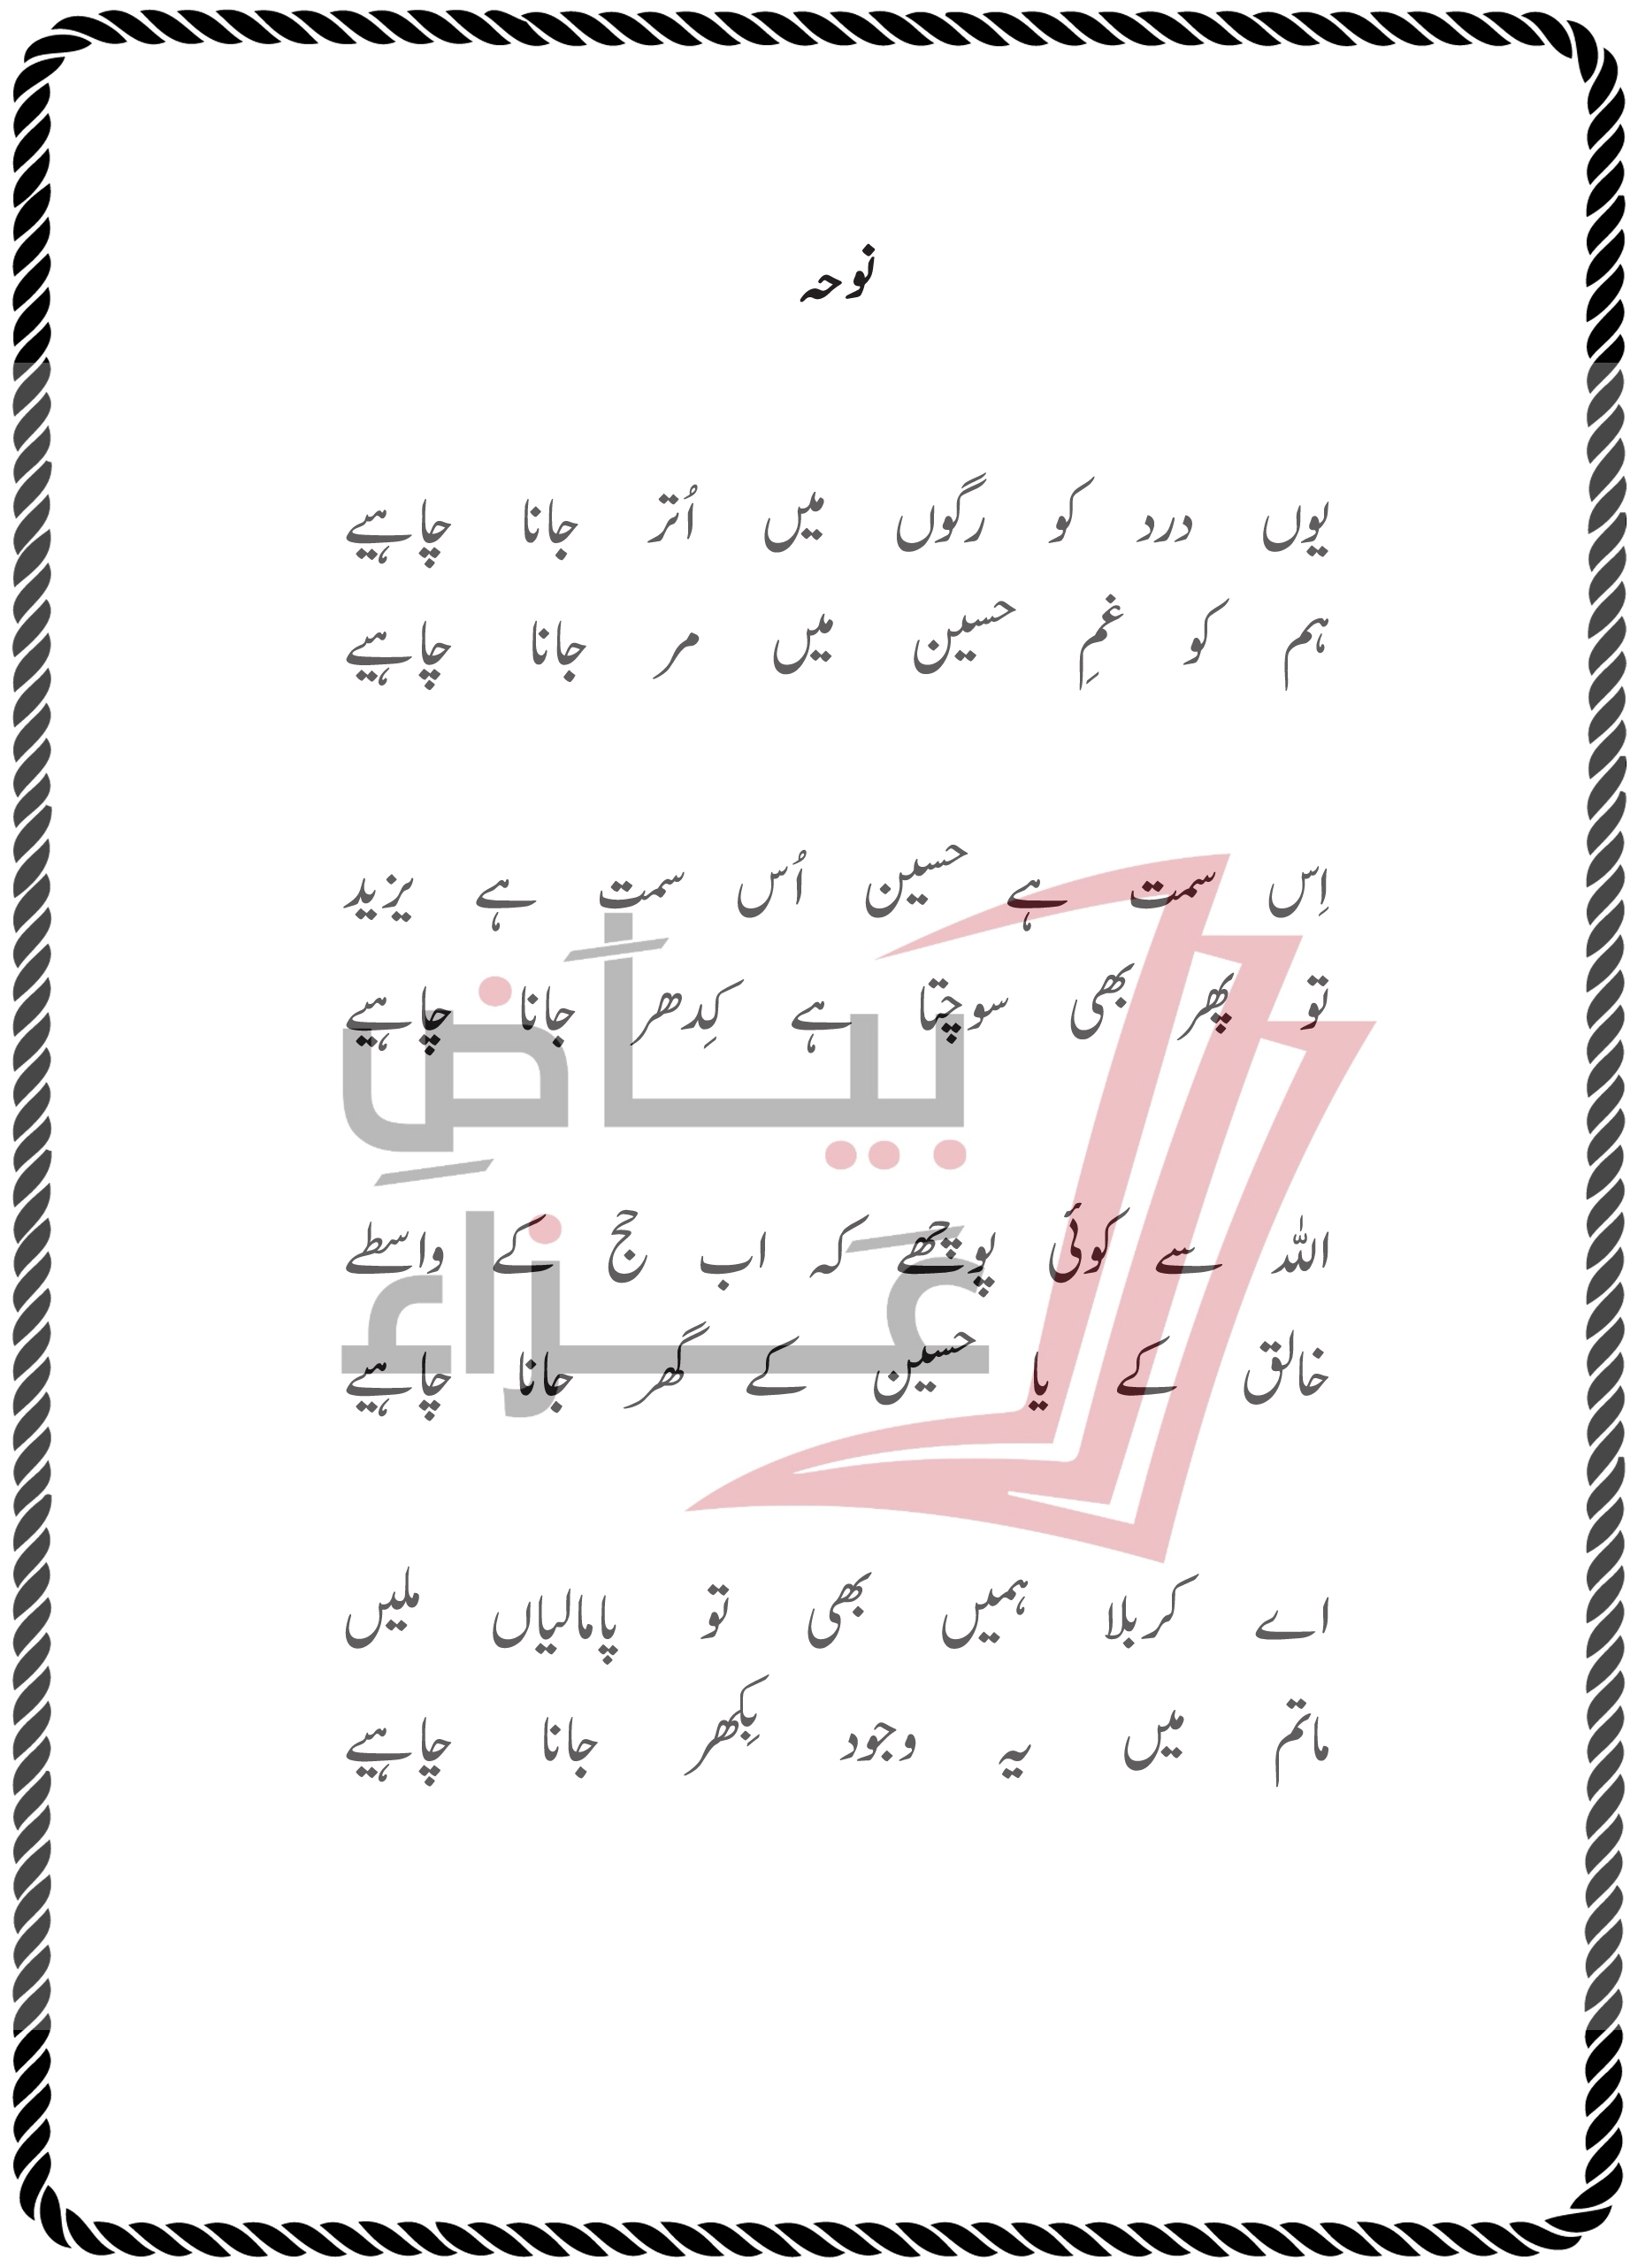 نوحہ
یوں درد کو رگوں میں اُتر جانا چاہیے
ہم کو غمِ حسین میں مر جانا چاہیے
اِس سمت ہے حسین اُس سمت ہے یزید
تو پھر بھی سوچتا ہے کِدھر جانا چاہیے
اللہ سے کوئی پوچھے کہ اب حج کے واسطے
خالق کے یا حسین کے گھر جانا چاہیے
اے کربلا ہمیں بھی تو پامالیاں ملیں
ماتم میں یہ وجود بِکھر جانا چاہیے
بیاضِ
عزاء